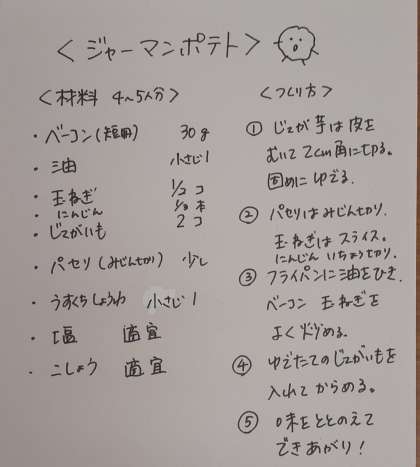 ＜ジャーマンポテト＞
＜材料 4〜5人分＞
・ベーコン(短冊) 30g
・油 小さじ1
・玉ねぎ 1/2コ
・にんじん 1/3本
・じゃがいも 2コ
・パセリ(みじん切り) 少し
・うすくちしょうゆ 小さじ1
・塩 適宜
・こしょう 適宜
＜つくり方＞
① じゃが芋は皮を
むいて2cm角に切る。
固めにゆでる。
② パセリはみじん切り.
玉ねぎはスライス。
にんじんいちょう切り.
③ フライパンに油をひき.
ベーコン 玉ねぎを
よく炒める.
④ ゆでたてのじゃがいもを
入れてからめる。
⑤ 味をととのえて
できあがり！